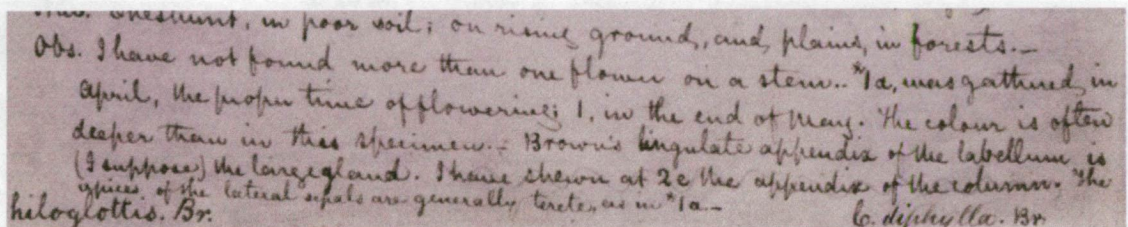 Cheshunt, in poor soil; on rising ground, and plains, in forests.—
Obs. I have not found more than one flower on a stem.. *1a, was gathered in
April, the proper time of flowering; 1, in the end of May. The colour is often
deeper than in this specimen.— Brown's lingulate appendix of the labellum is
(I suppose) the large gland. I have shewn at 2c the appendix of the column. The
apices of the lateral sepals are generally terete, as in *1a.—
hiloglottis. Br. C. diphylla. Br.